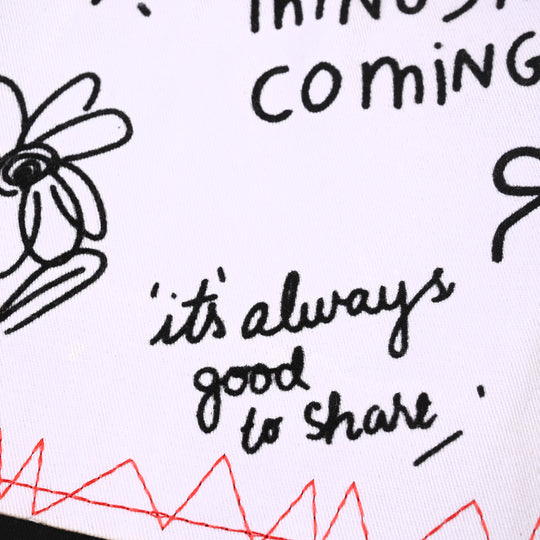 COMING
'it's always
good
to share_'